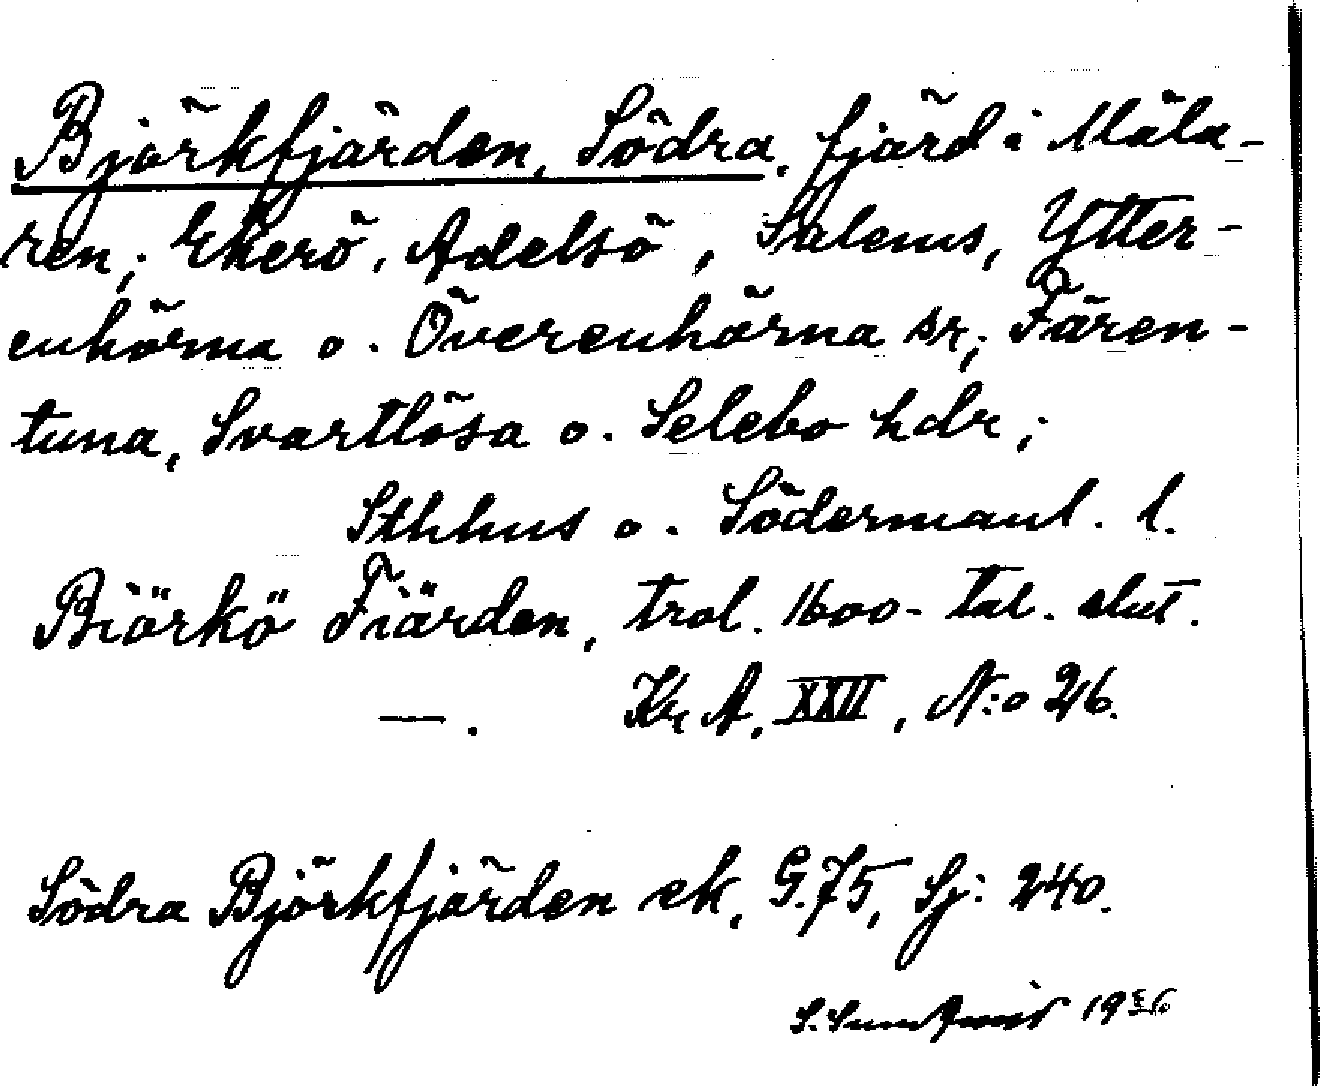 Björkfjärden, Södra, fjärd i Mäla-
ren; Ekerö, Adelsö, Salems, Ytter-
enhörna o. Överenhörna sr; Fären-
tuna, Svartlösa o. Selebo hdr;
Sthhus o. Södermanl. l.
Biörkö Fiärden, trol. 1600-tal. slut.
—. Kr A, XXII, N:o 26.
Södra Björkfjärden ek, G.75, Sj: 240.
S. Sundqvist 19